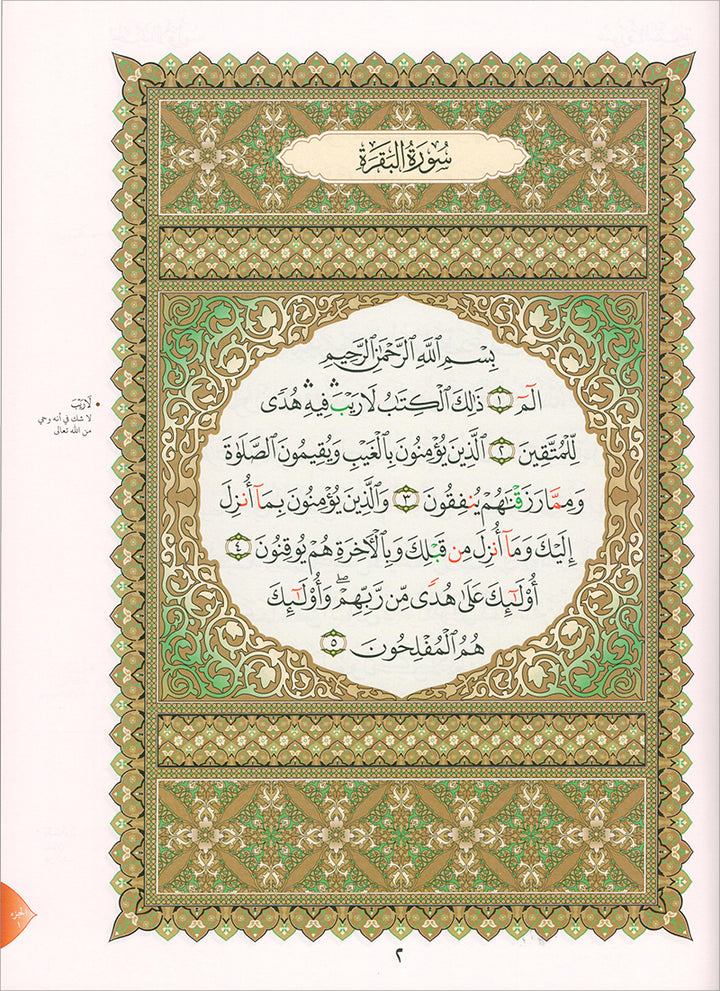 سُورَةُ الْبَقَرَةِ
بِسْمِ ٱللَّهِ ٱلرَّحْمَٰنِ ٱلرَّحِيمِ
الٓمٓ ١ ذَٰلِكَ ٱلْكِتَٰبُ لَا رَيْبَ ۛ فِيهِ ۛ هُدًى
لِّلْمُتَّقِينَ ٢ ٱلَّذِينَ يُؤْمِنُونَ بِٱلْغَيْبِ وَيُقِيمُونَ ٱلصَّلَوٰةَ
وَمِمَّا رَزَقْنَٰهُمْ يُنفِقُونَ ٣ وَٱلَّذِينَ يُؤْمِنُونَ بِمَآ أُنزِلَ
إِلَيْكَ وَمَآ أُنزِلَ مِن قَبْلِكَ وَبِٱلْءَاخِرَةِ هُمْ يُوقِنُونَ ٤
أُو۟لَٰٓئِكَ عَلَىٰ هُدًى مِّن رَّبِّهِمْ ۖ وَأُو۟لَٰٓئِكَ
هُمُ ٱلْمُفْلِحُونَ ٥
• لَا رَيْبَ
لا شك في أنه وحي
من الله تعالى
الجزء
١
٢